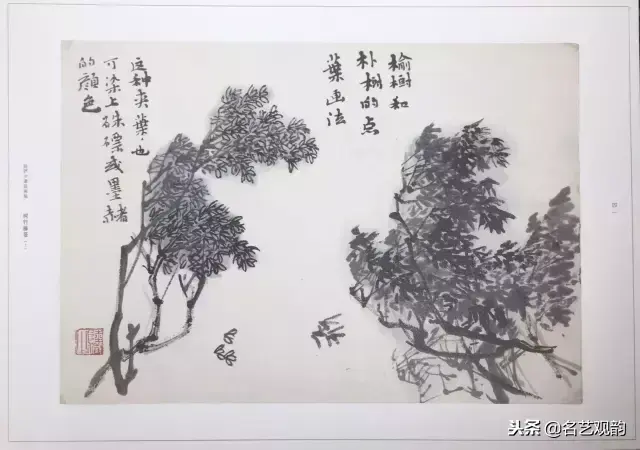 榆樹和
朴樹的点
葉画法
这种夹葉，也
可染上硃磦或墨赭
的顔色
头条 @名艺观韵